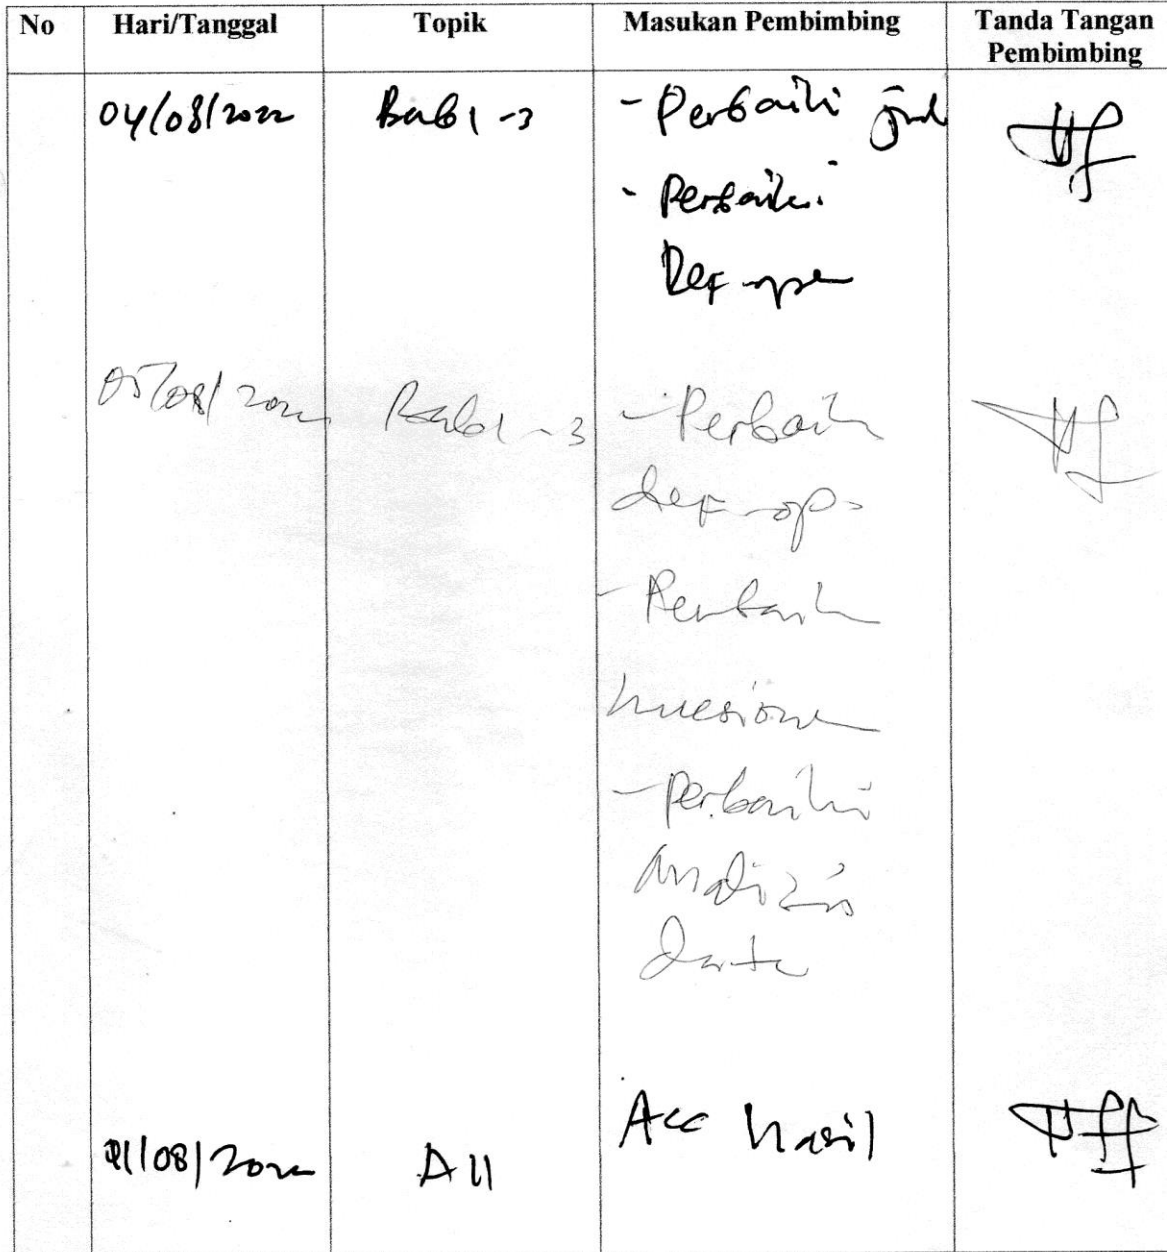 No Hari/Tanggal Topik Masukan Pembimbing Tanda Tangan Pembimbing
04/08/2022 Bab 1 -3 - Perbaiki
- Perbaiki
Def ope
05/08/2022 Bab 1 - 3 - Perbaiki
def op
- Perbaiki
kuesioner
- perbaiki
analisis
data
/08/2022 All Acc hasil